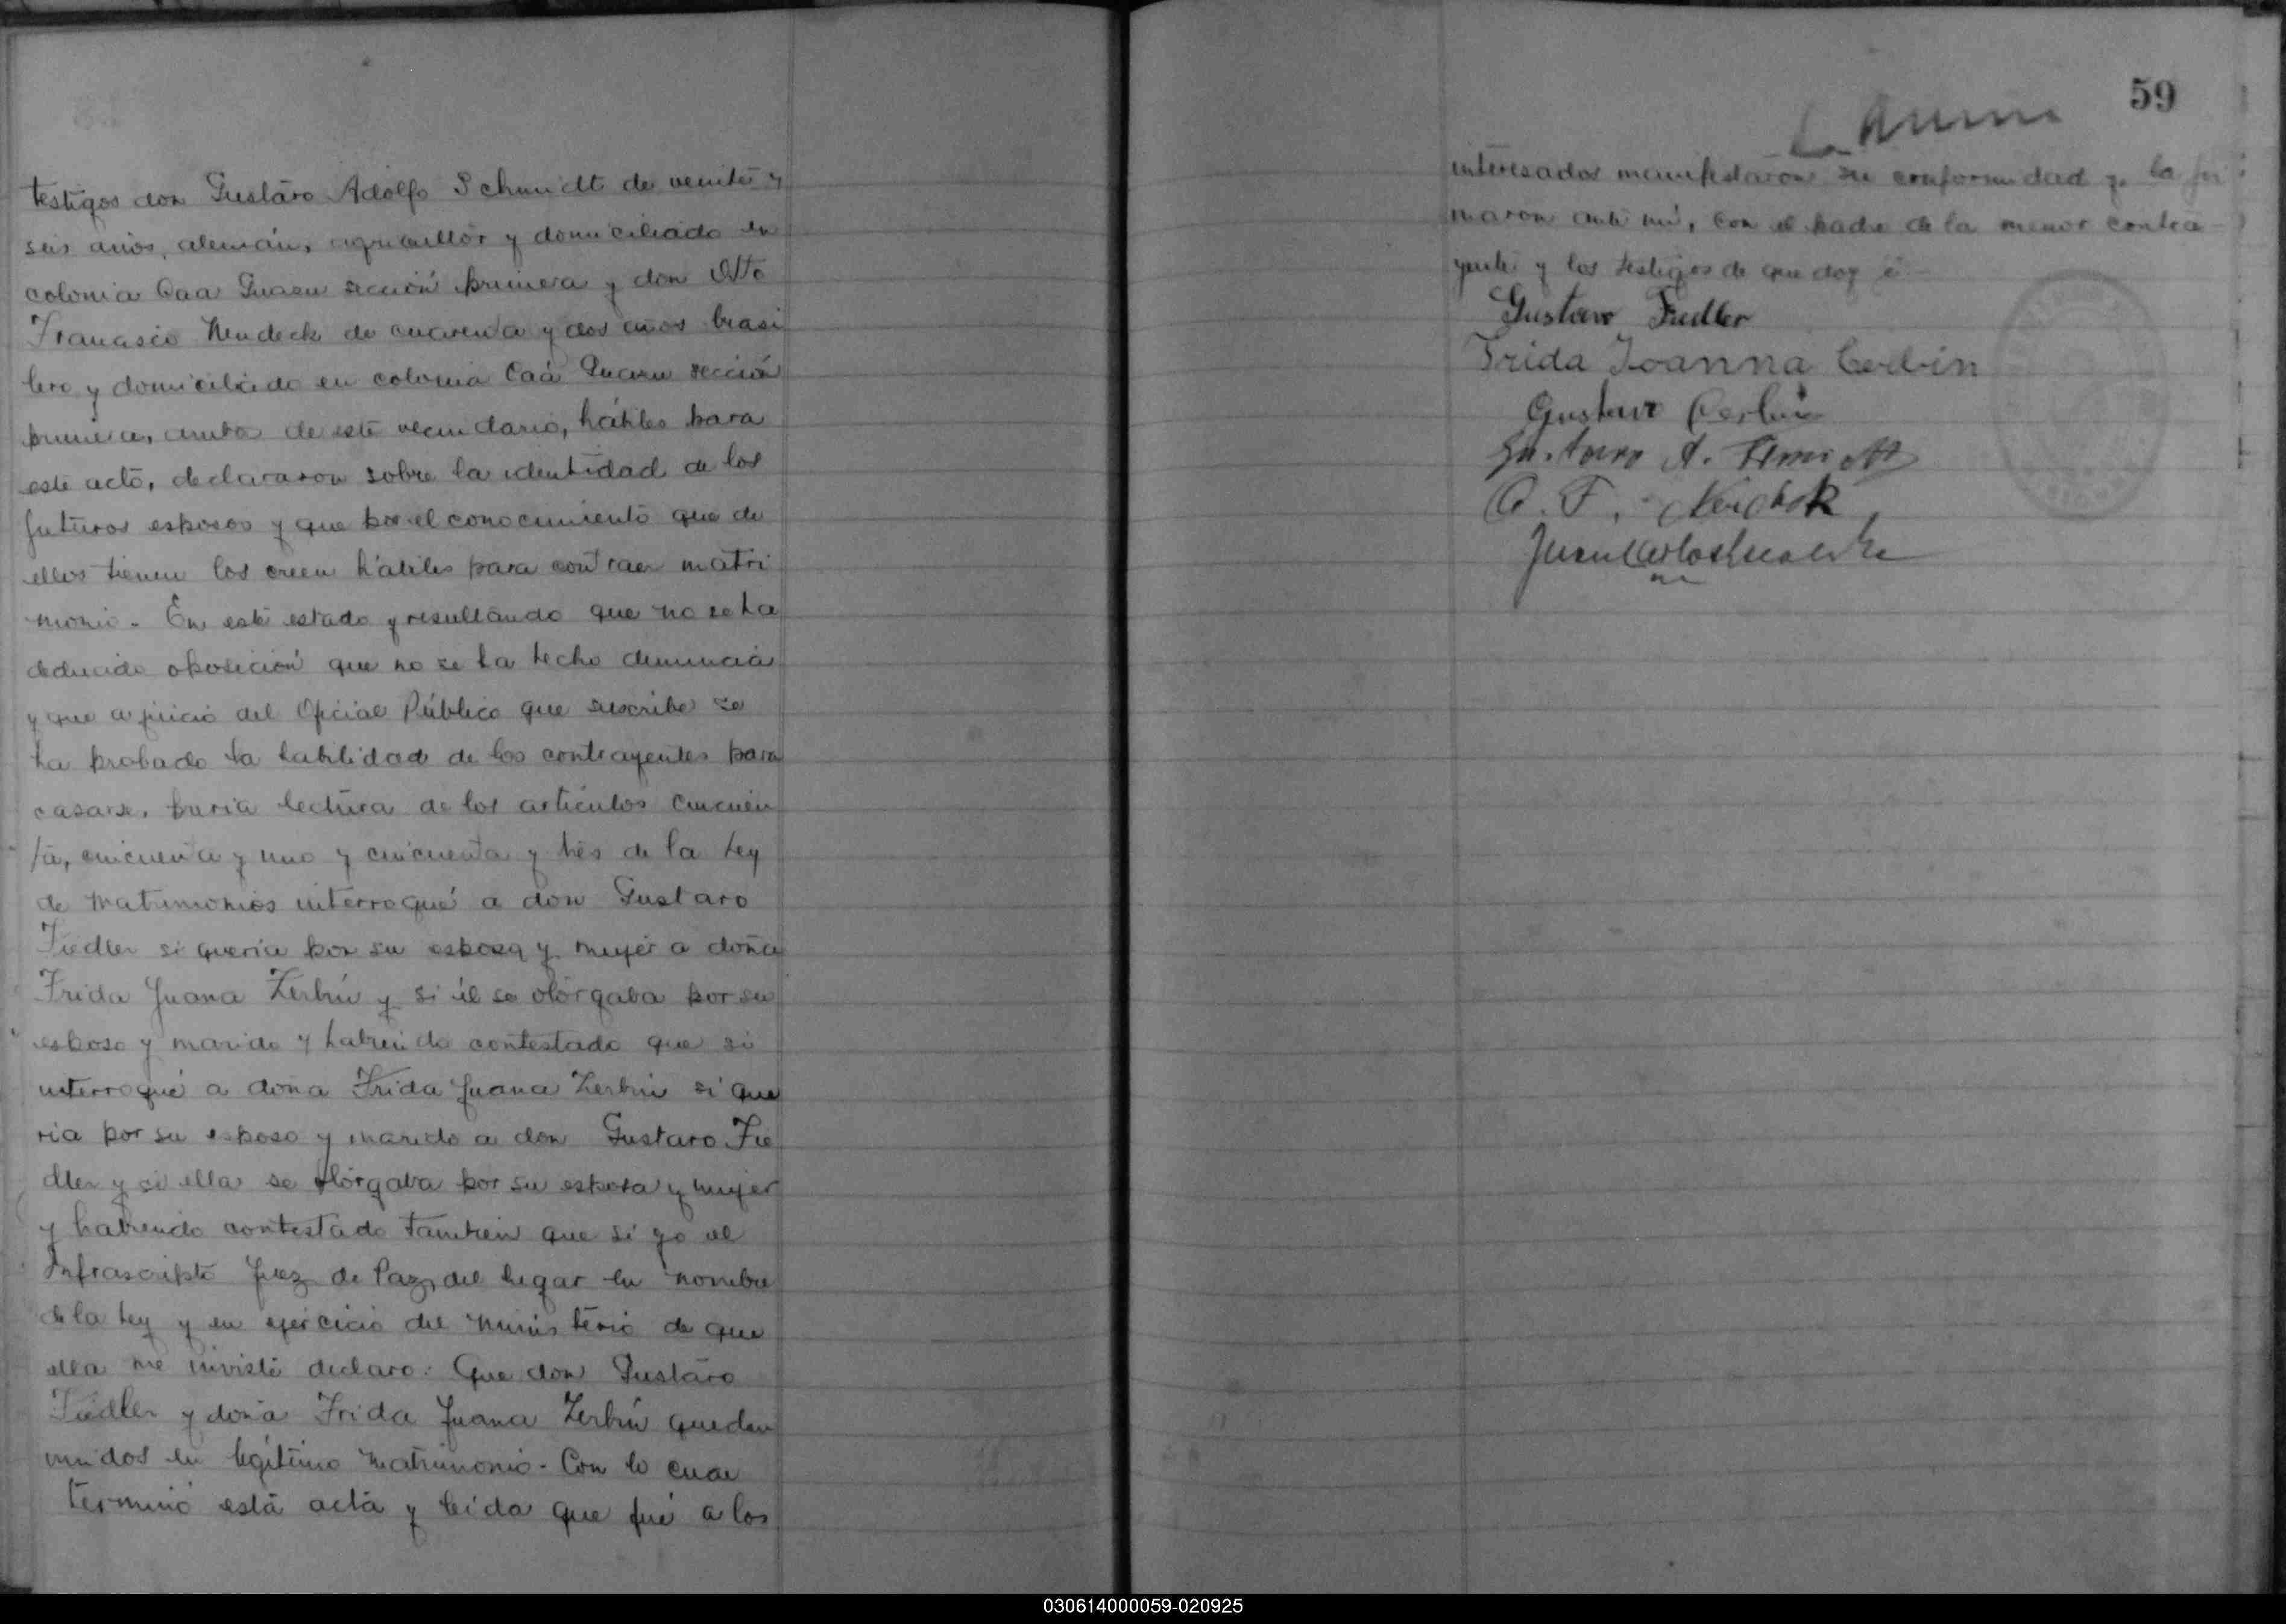 testigos don Gustavo Adolfo Schmidt de veinte y
seis años, alemán, agricultor y domiciliado en
colonia Caa Guazu sección primera y don Otto
Francisco Neudeck de cuarenta y dos años brasi
lero y domiciliado en colonia Caá Guazu sección
primera, ambos de este vecindario, hábiles para
este acto, declararon sobre la identidad de los
futuros esposos y que por el conocimiento que de
ellos tienen los creen hábiles para contraer matri
monio. En este estado y resultando que no se ha
deducido oposición que no se ha hecho denuncia
y que a juicio del Oficial Público que suscribe se
ha probado la habilidad de los contrayentes para
casarse, previa lectura de los artículos cincuen
ta, cincuenta y uno y cincuenta y tres de la Ley
de Matrimonios interrogué a don Gustavo
Fiedler si quería por su esposa y mujer a doña
Frida Juana Zerbin y si él se otorgaba por su
esposo y marido y habiendo contestado que si
interrogué a doña Frida Juana Zerbin si que
ria por su esposo y marido a don Gustavo Fie
dler y si ella se otorgaba por su esposa y mujer
y habiendo contestado tambien que si yo el
Infrascripto Juez de Paz, del lugar en nombre
de la Ley y en ejercicio del Ministerio de que
ella me inviste declaro: Que don Gustavo
Fiedler y doña Frida Juana Zerbin quedan
unidos en legítimo matrimonio. Con lo cual
terminó esta acta y leída que fué a los
59
interesados manifestaron su conformidad y la fir
maron ante mí, con el padre de la menor contra
yente y los testigos de que doy
Gustavo Fiedler
Frida Joanna Cerbin
Gustavo Cerbin
Gustavo A.
O. F. Neudek
Juan Carlos
030614000059-020925